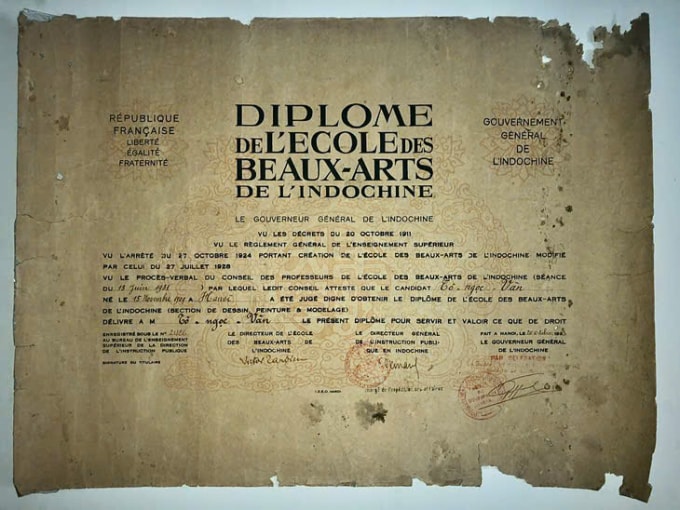 RÉPUBLIQUE
FRANÇAISE
LIBERTÉ
ÉGALITÉ
FRATERNITÉ
DIPLOME
DE L'ECOLE DES
BEAUX-ARTS
DE L'INDOCHINE
GOUVERNEMENT
GÉNÉRAL
DE
L'INDOCHINE
LE GOUVERNEUR GÉNÉRAL DE L'INDOCHINE
VU LES DÉCRETS DU 20 OCTOBRE 1911
VU LE RÈGLEMENT GÉNÉRAL DE L'ENSEIGNEMENT SUPÉRIEUR
VU L'ARRÊTÉ DU 27 OCTOBRE 1924 PORTANT CRÉATION DE L'ÉCOLE DES BEAUX-ARTS DE L'INDOCHINE MODIFIÉ
PAR CELUI DU 27 JUILLET 1928
VU LE PROCÈS-VERBAL DU CONSEIL DES PROFESSEURS DE L'ÉCOLE DES BEAUX-ARTS DE L'INDOCHINE (SÉANCE
DU 13 Juin 1931 ) PAR LEQUEL LEDIT CONSEIL ATTESTE QUE LE CANDIDAT Tô - ngọc - Vân
NÉ LE 15 Novembre 1909 A Hanoi A ÉTÉ JUGÉ DIGNE D'OBTENIR LE DIPLÔME DE L'ÉCOLE DES BEAUX-ARTS
DE L'INDOCHINE (SECTION DE DESSIN, PEINTURE & MODELAGE)
DÉLIVRE A M Tô - ngọc - Vân LE PRÉSENT DIPLÔME POUR SERVIR ET VALOIR CE QUE DE DROIT
ENREGISTRÉ SOUS LE N°
AU BUREAU DE L'ENSEIGNEMENT
SUPÉRIEUR DE LA DIRECTION
DE L'INSTRUCTION PUBLIQUE
SIGNATURE DU TITULAIRE
LE DIRECTEUR DE L'ÉCOLE
DES BEAUX-ARTS DE
L'INDOCHINE
Victor Tardieu
LE DIRECTEUR GÉNÉRAL
DE L'INSTRUCTION PUBLI-
QUE EN INDOCHINE
FAIT A HANOI, LE
LE GOUVERNEUR GÉNÉRAL
DE L'INDOCHINE
PAR DÉLÉGATION
I.D.E.O. HANOI